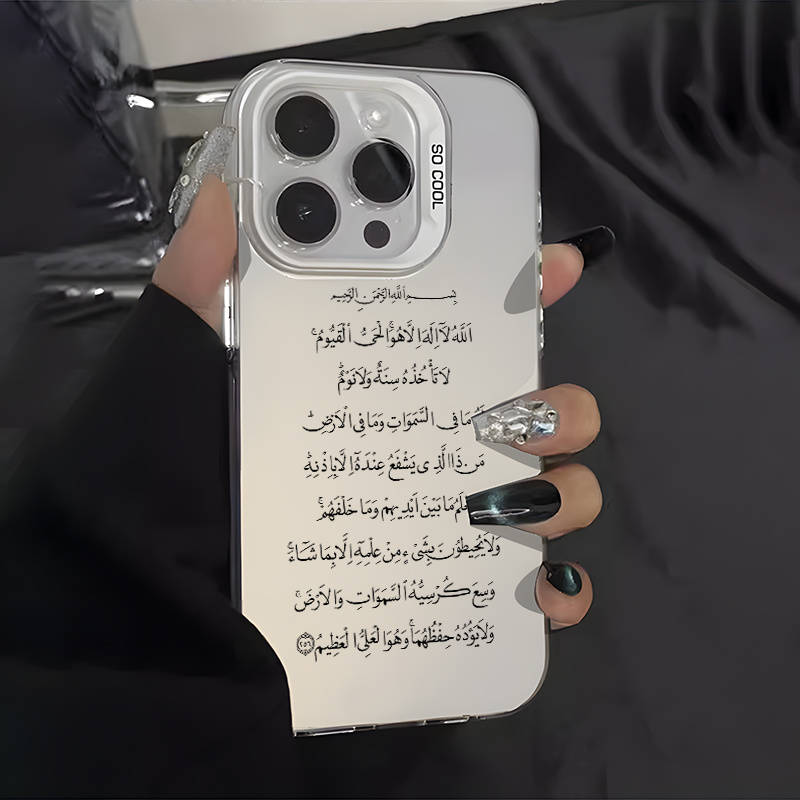 SO COOL
بِسْمِ اللَّهِ الرَّحْمَنِ الرَّحِيمِ
اَللّٰهُ لَآ اِلٰهَ اِلَّا هُوَۚ اَلْحَىُّ الْقَيُّومُۚ
لَا تَأْخُذُهُ سِنَةٌ وَلَا نَوْمٌۜ
لَهُ مَا فِى السَّمٰوَاتِ وَمَا فِى الْاَرْضِۜ
مَنْ ذَا الَّذِى يَشْفَعُ عِنْدَهُٓ اِلَّا بِاِذْنِهِۜ
يَعْلَمُ مَا بَيْنَ اَيْدِيهِمْ وَمَا خَلْفَهُمْۚ
وَلَا يُحِيطُونَ بِشَىْءٍ مِنْ عِلْمِهِٓ اِلَّا بِمَا شَٓاءَۚ
وَسِعَ كُرْسِيُّهُ السَّمٰوَاتِ وَالْاَرْضَۚ
وَلَا يَؤُدُهُ حِفْظُهُمَاۚ وَهُوَ الْعَلِىُّ الْعَظِيمُ ﴿٢٥٥﴾